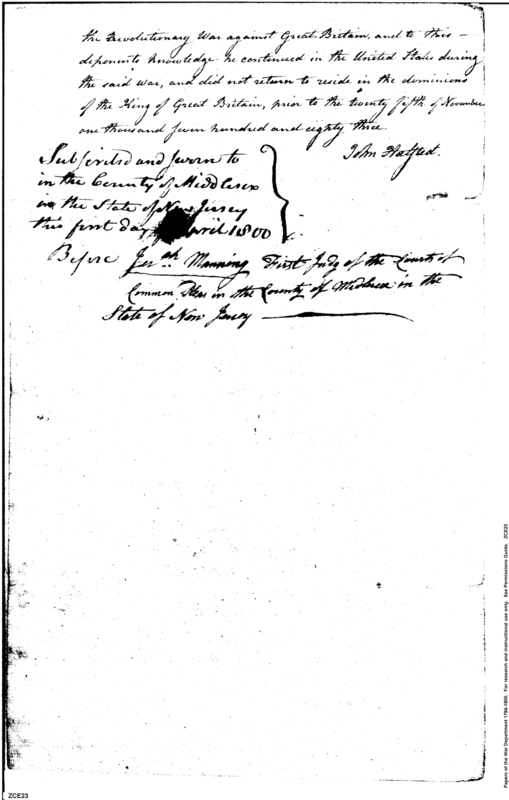 the Revolutionary War against Great-Britain, and to this –
deponents knowledge he continued in the United States during
the said war, and did not return to reside in the dominions
of the King of Great Britain, prior to the twenty fifth of November
one thousand seven hundred and eighty three.
John Hatfied.
Subscribed and sworn to
in the County of Middlesex
in the State of New Jersey
this first day April 1800
Before Jerah Manning First Judg of the Courts of
Common Pleas in the County of Middlesex in the
State of New Jersey
Papers of the War Department 1784-1800. For research and instructional use only. See Permissions Guide. ZCE23
ZCE23